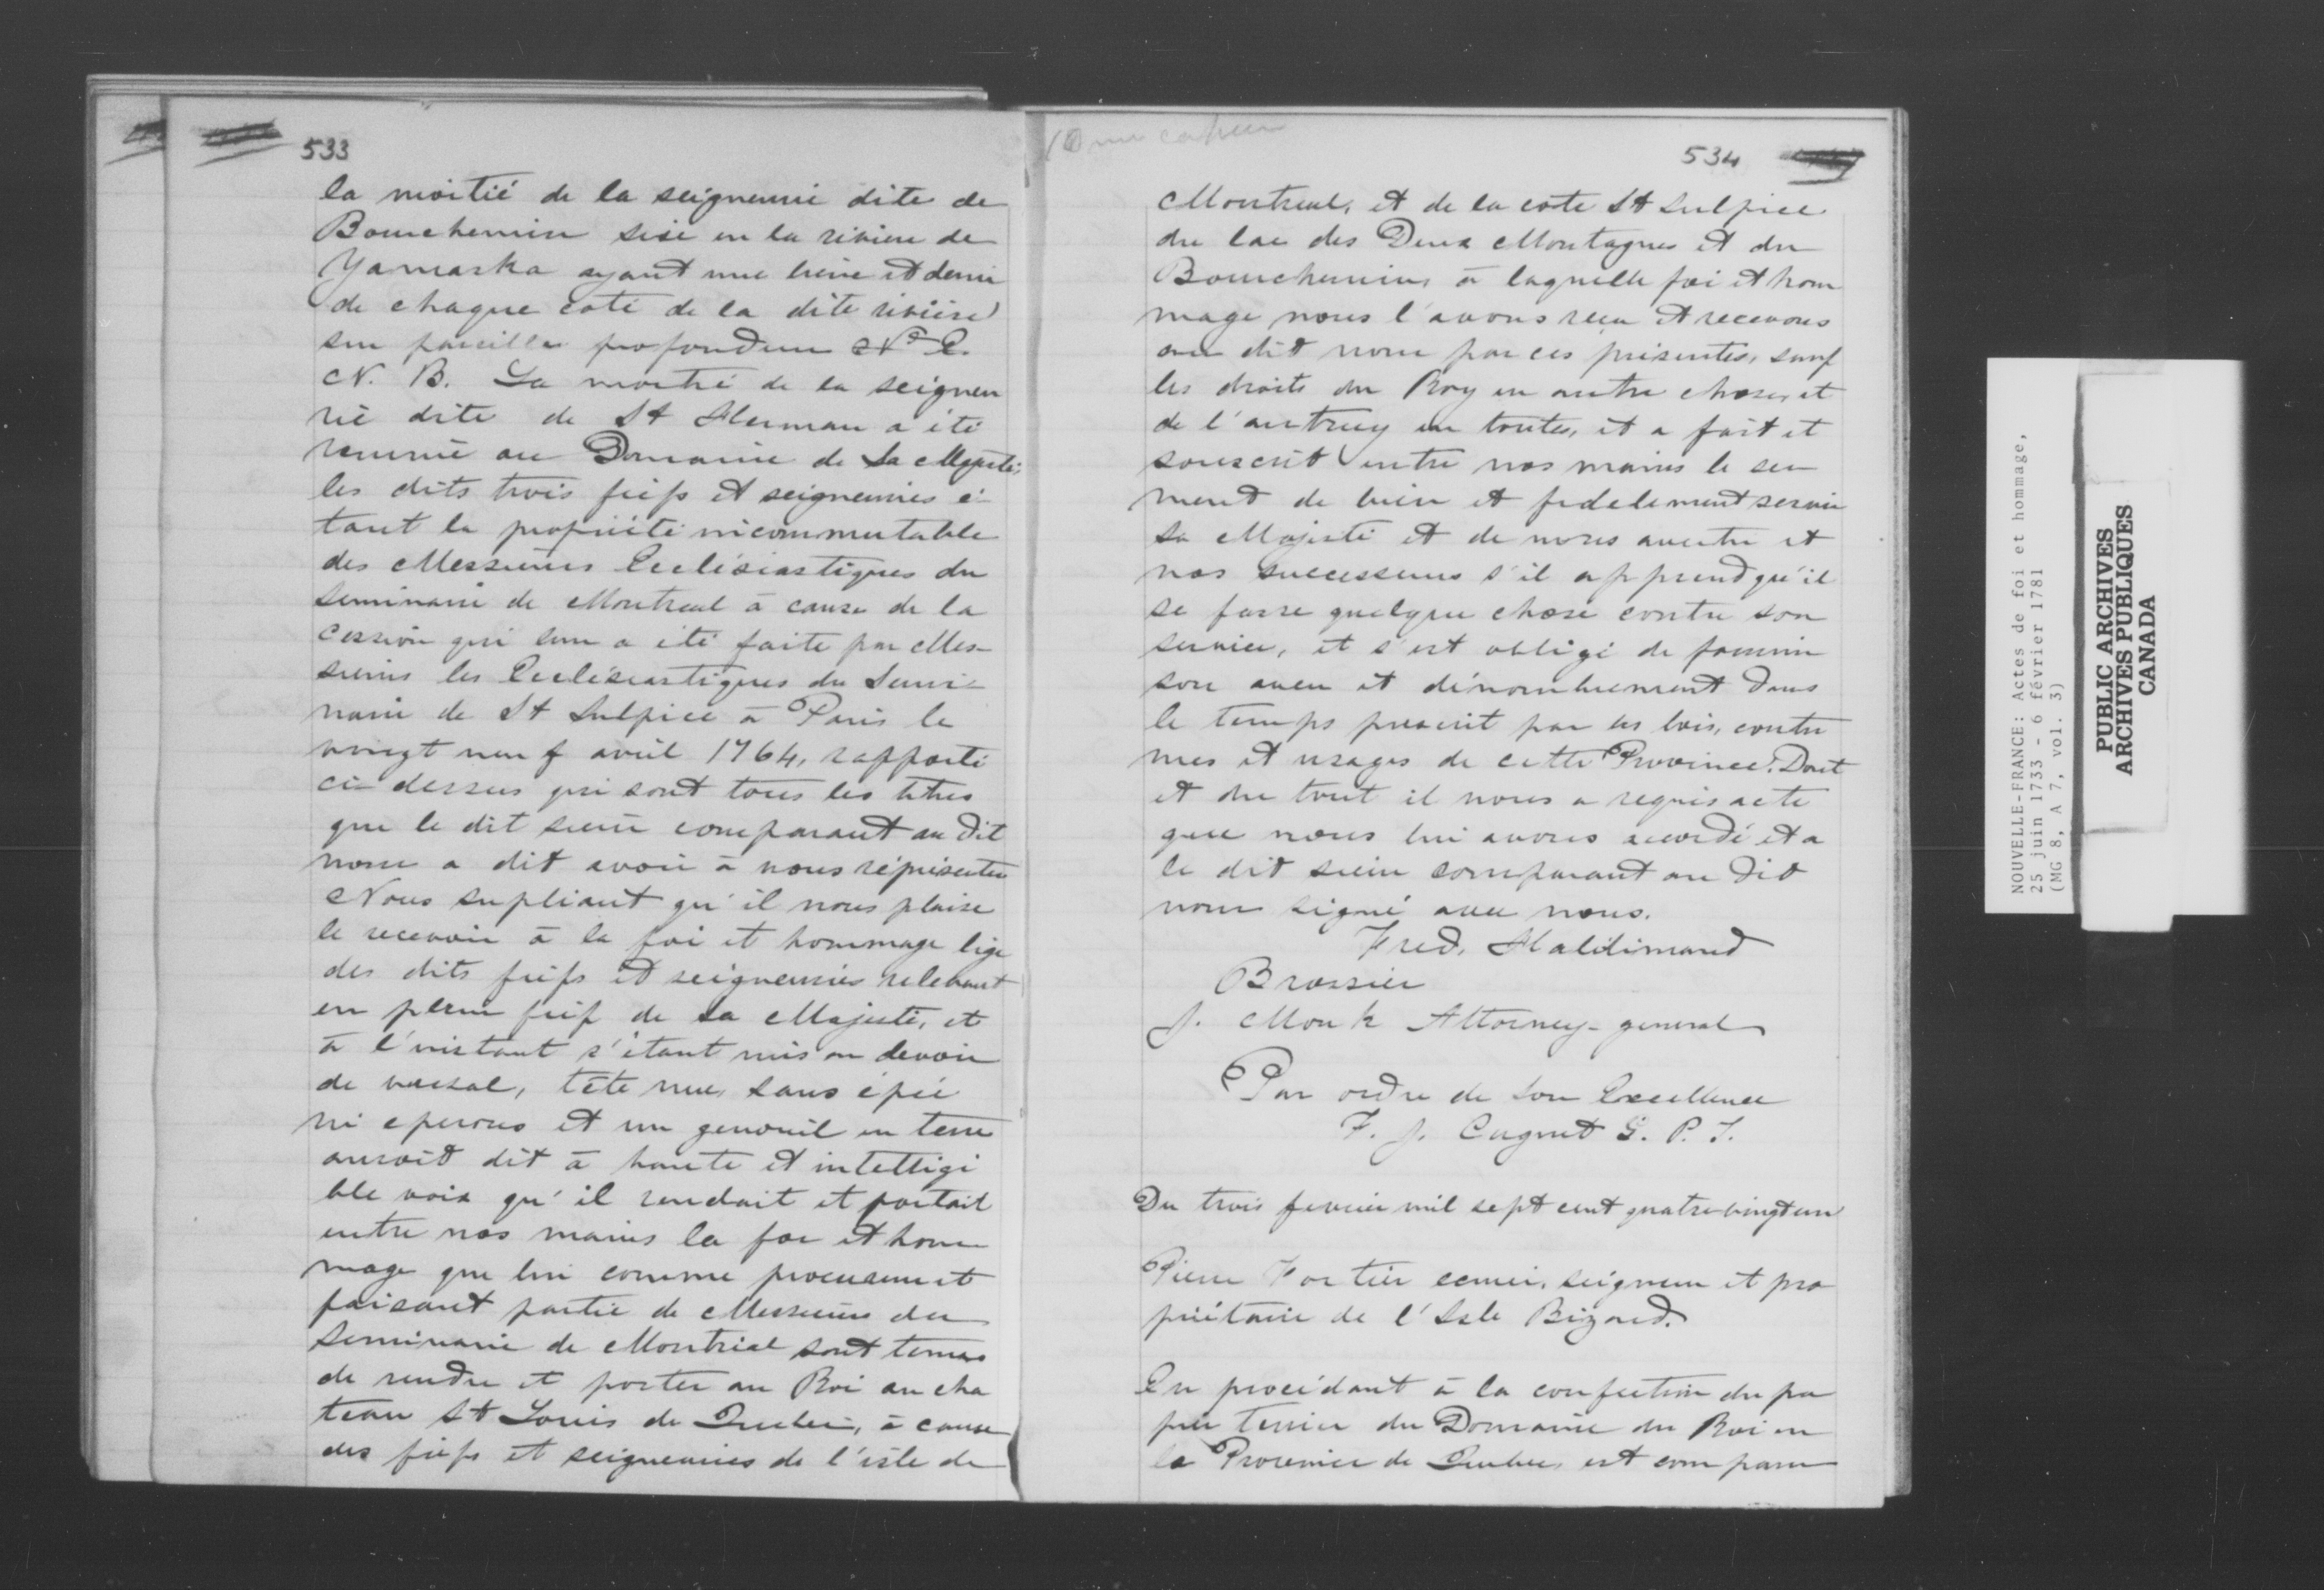 533
la moitié de la seigneurie dite de
Bourchemin sise en la riviere de
Yamaska ayant une lieue et demie
de chaque coté de la dite rivière
sur pareille profondeur No E.
N. B. La moitié de la seigneu
rie dite de St Herman a été
reunie au Domaine de Sa Majesté;
les dits trois fiefs et seigneuries é-
tant la propriété incommutable
des Messieurs Ecclésiastiques du
seminaire de Montreal à cause de la
cession qui leur a été faite par Mes-
sieurs les Ecclésiastiques du Semi-
naire de St Sulpice à Paris le
vingt neuf avril 1764, rapporté
ci-dessus qui sont tous les titres
que le dit sieur comparant au dit
nom a dit avoir à nous réprésenter
Nous supliant qu'il nous plaise
le recevoir à la foi et hommage lige
des dits fiefs et seigneuries relevant
en plein fief de Sa Majesté, et
à l'instant s'étant mis en devoir
de vassal, tête nue, sans épée
ni eperons et un genouil en terre
auroit dit à haute et intelligi
ble voix qu'il rendait et portait
entre nos mains la foi et hom
mage que lui comme procureur et
faisant partie de Messieurs du
Seminaire de Montréal sont tenus
de rendre et porter au Roi au cha
teau St Louis de Quebec, à cause
des fiefs et seigneuries de l'isle de
534
Montreal, et de la cote St Sulpice
du lac des Deux Montagnes et du
Bourchemin, à laquelle foi et hom
mage nous l'avons reçu et recevons
au dit nom par ces présentes, sauf
les droits du Roy en autre chose, et
de l'autruy en toutes, et a fait et
souscrit entre nos mains le ser
ment de bien et fidelement servir
sa Majesté et de nous avertir et
nos successeurs s'il apprend qu'il
se fasse quelque chose contre son
service, et s'est obligé de fournir
son aveu et dénombrement dans
le temps prescrit par les lois, coutu
mes et usages de cette Province. Dont
et du tout il nous a requis acte
que nous lui avons accordé et a
le dit sieur comparant au dit
nom signé avec nous.
Fred. Haldimand
Brassier
J. Monk Attorney-general
Par ordre de Son Excellence
F. J. Cugnet G. P. T.
Du trois fevrier mil sept cent quatre vingt un
Pierre Fortier ecuier, seigneur et pro
priétaire de l'Isle Bizard.
En procédant à la confection du pa
pier terrier du Domaine du Roi en
la Province de Quebec, est comparu
NOUVELLE-FRANCE: Actes de foi et hommage,
25 juin 1733 - 6 février 1781
(MG 8, A 7, vol. 3)
PUBLIC ARCHIVES
ARCHIVES PUBLIQUES
CANADA